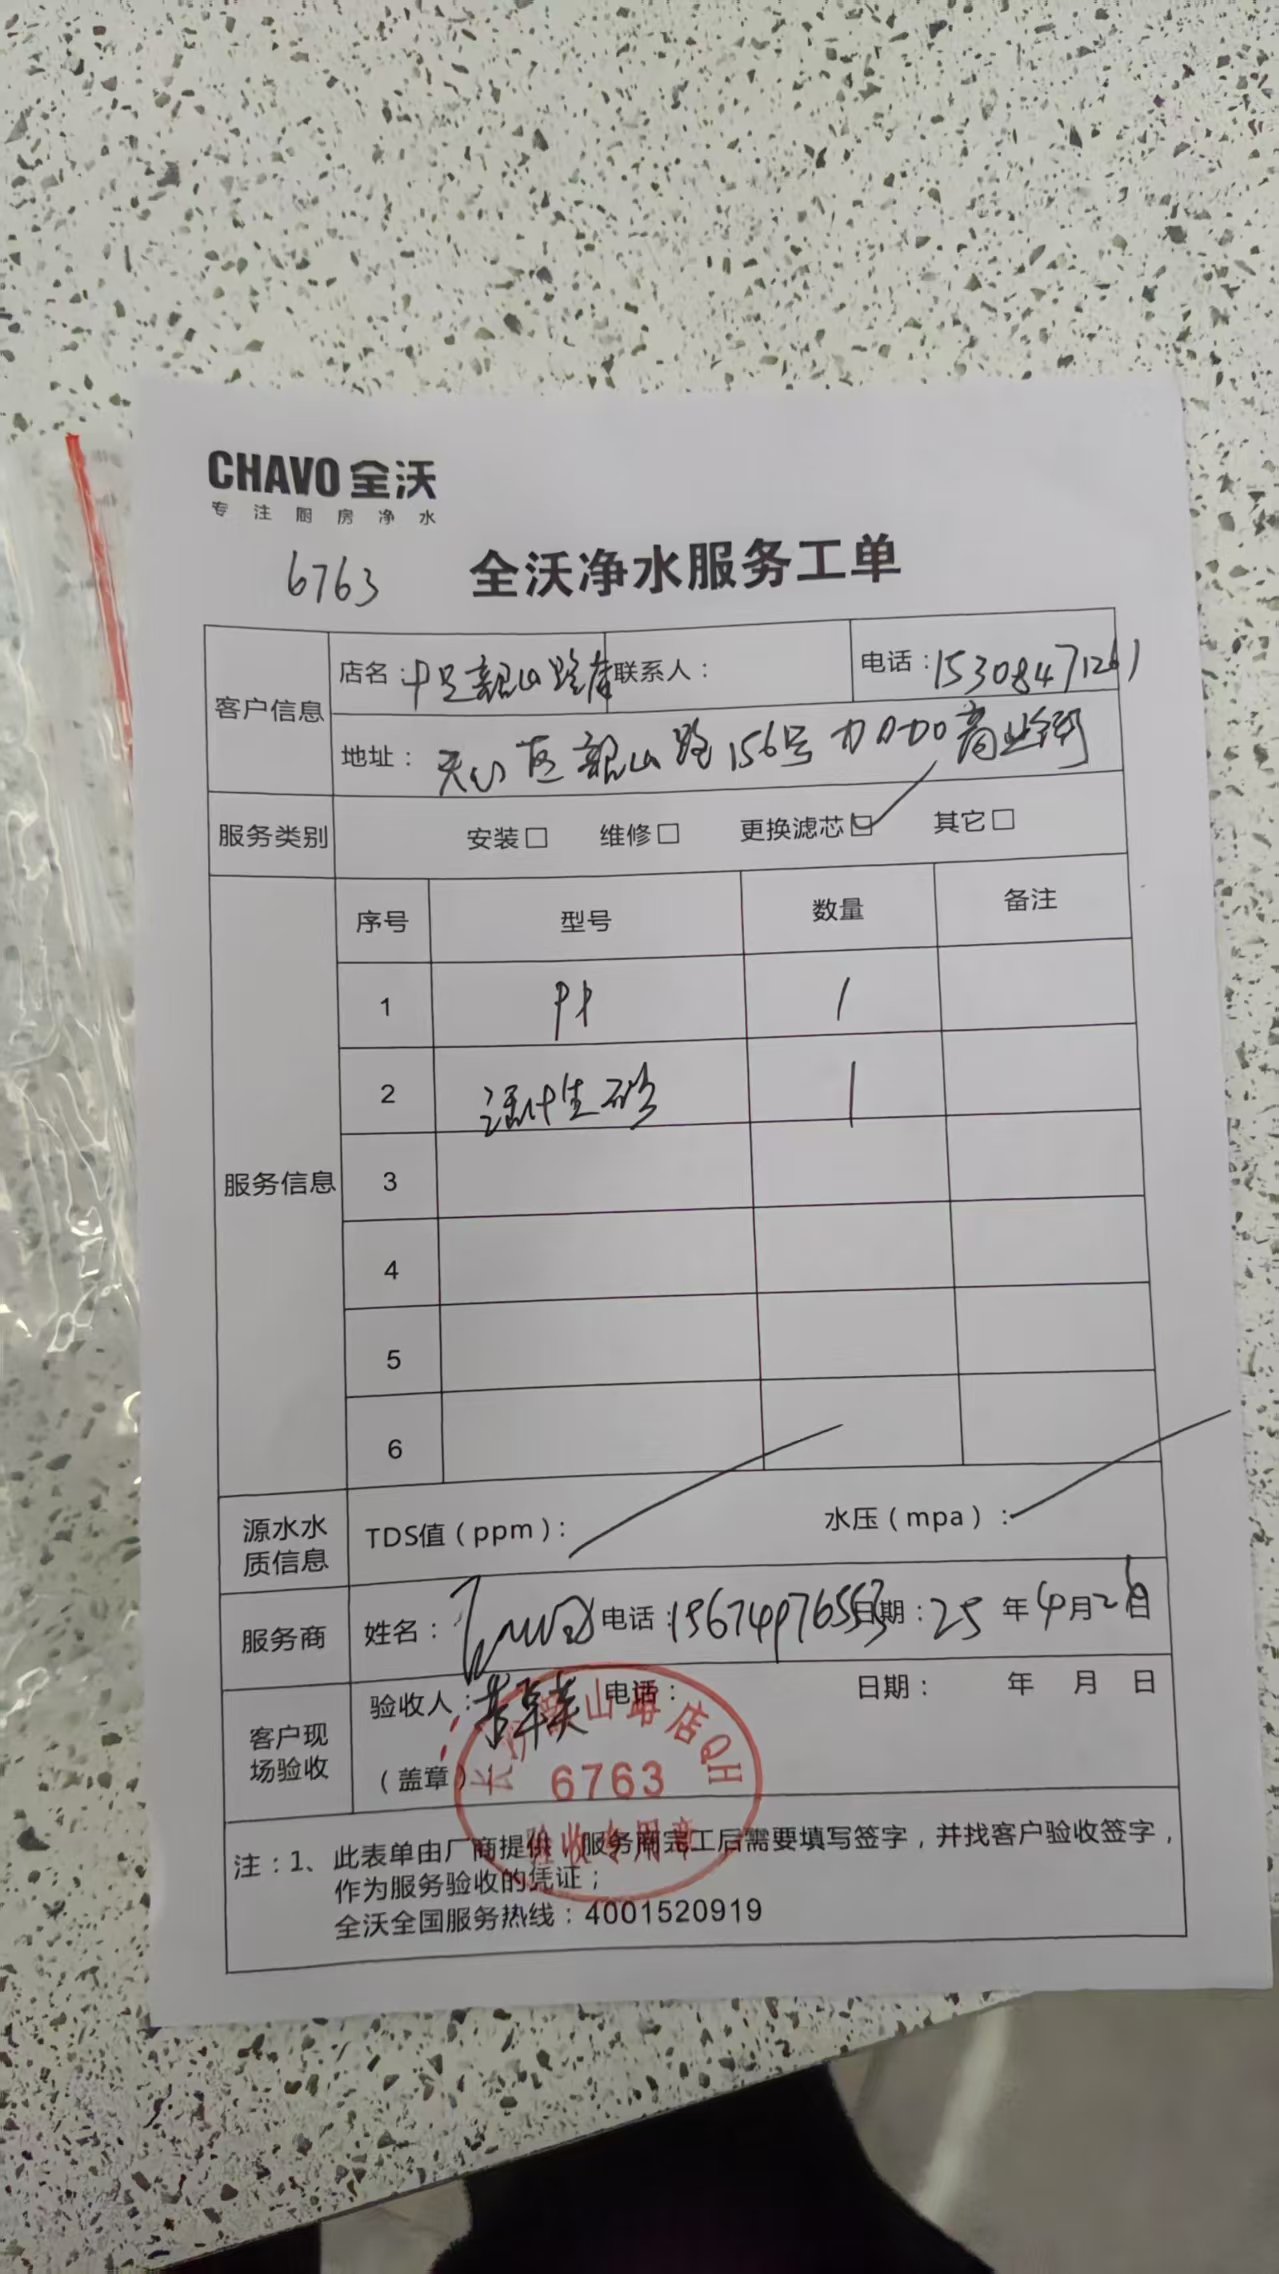 CHAVO 全沃
专注厨房净水
6763 全沃净水服务工单
客户信息
店名： 韶山路店 联系人： 电话：15308471261
地址： 天心区韶山路156号 商业街
服务类别 安装□ 维修□ 更换滤芯☑ 其它□
服务信息
序号 型号 数量 备注
1 PP 1
2 1
3
4
5
6
源水水质信息 TDS值（ppm）： 水压（mpa）：
服务商 姓名： 电话：15674976553 日期：25年4月26日
客户现场验收 验收人： 电话： 日期： 年 月 日
（盖章）
长沙韶山路店QH
6763
验收专用章
注：1、此表单由厂商提供，服务商完工后需要填写签字，并找客户验收签字，
作为服务验收的凭证；
全沃全国服务热线：4001520919